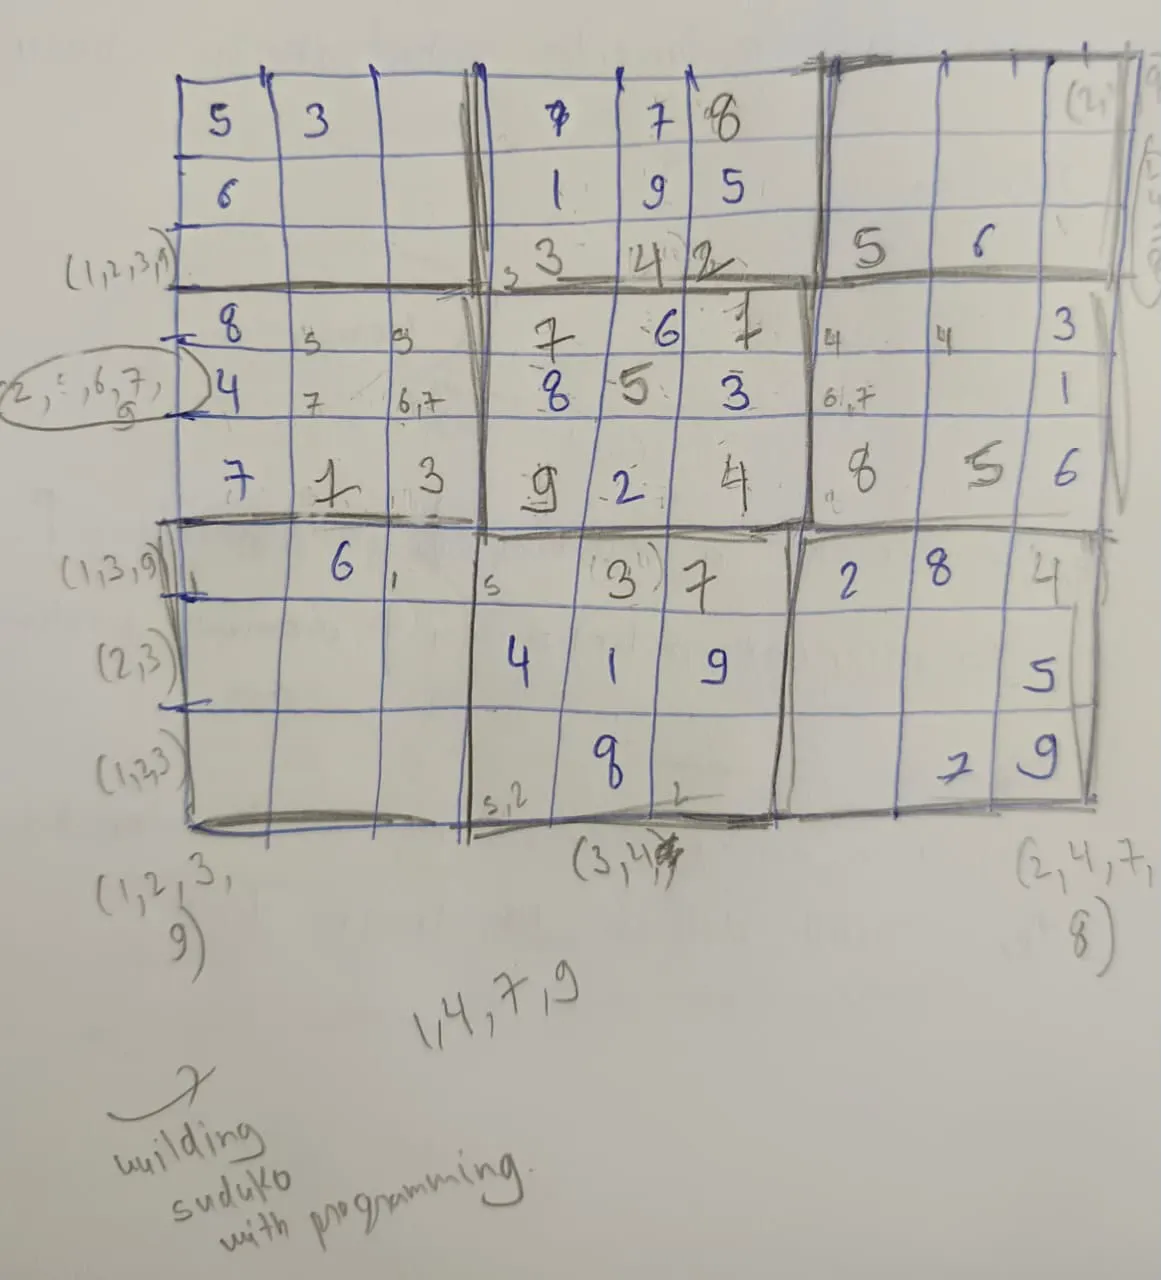 5 3 7 8 (2,
6 1 9 5
(1,2,3,9) 3 3 4 2 5 6
8 5 5 7 6 1 4 4 3
2, 6,7, 9 4 7 6,7 8 5 3 6,7 1
7 1 3 9 2 4 8 5 6
(1,3,9) 1 6 1 5 (3) 7 2 8 4
(2,3) 4 1 9 5
(1,2,3) 5,2 8 2 7 9
(1,2,3, (3,4, (2,4,7,
9) 8)
1,4,7,9
wuilding
suduko
with programming.